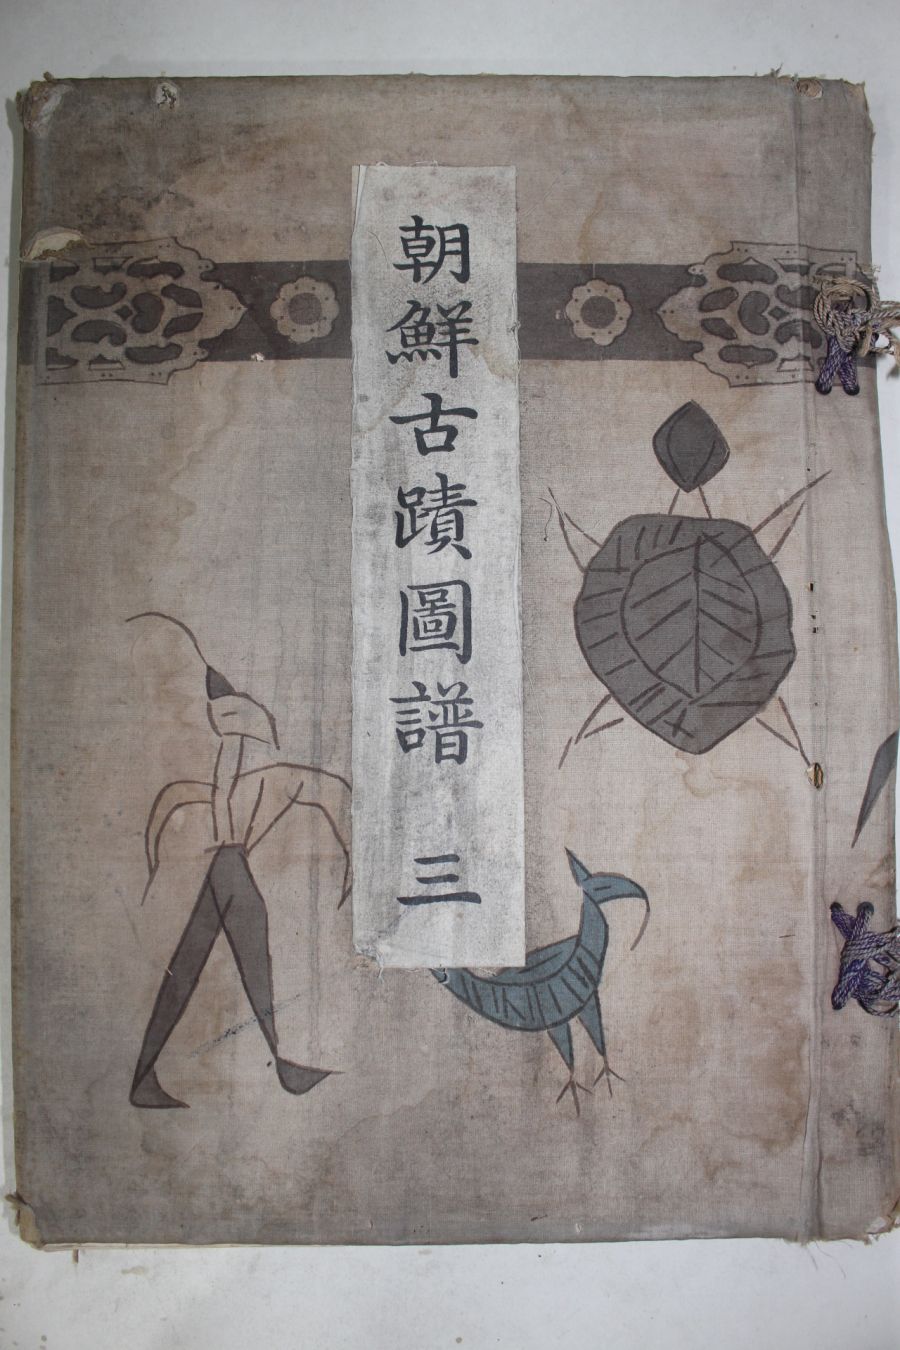 朝鮮古蹟圖譜 三